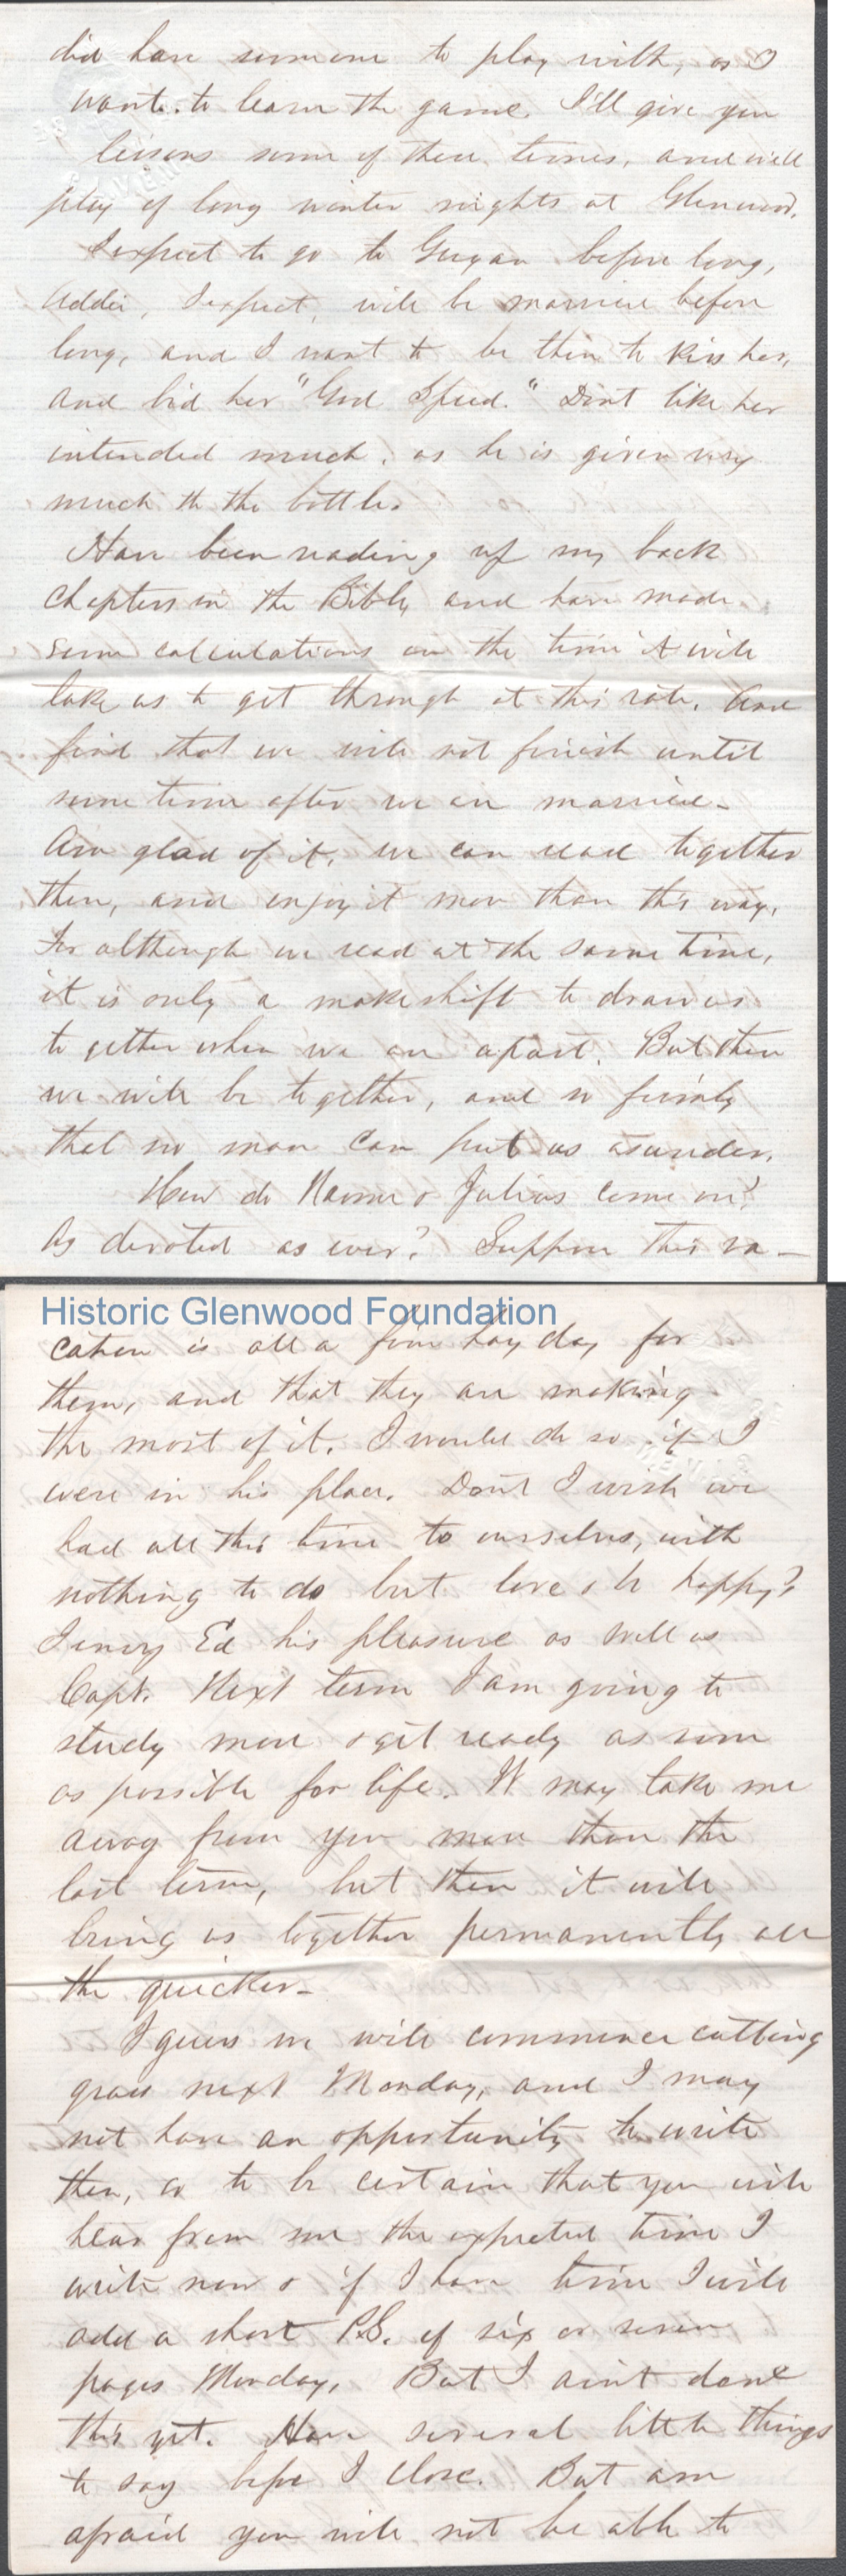 did have someone to play with, as I
want to learn the game. I'll give you
lessons some of these times, and will
play of long winter nights at Glenwood.
I expect to go to Guyan before long,
Addie, I expect, will be married before
long, and I want to be there to kiss her,
and bid her "God Speed." Dont like her
intended much, as he is given very
much to the bottle.
Have been reading up my back
chapters in the Bible, and have made
some calculations on the time it will
take us to get through at this rate. And
find that we will not finish until
some time after we are married -
Am glad of it, we can read together
then, and enjoy it more than this way,
for although we read at the same time,
it is only a makeshift to draw us
to gether when we are apart. But then
we will be together, and so firmly
that no man can put us asunder.
How do & Julius come on?
As devoted as ever? Suppose this va -
Historic Glenwood Foundation
cation is all a fine hay day for
them, and that they are making
the most of it. I would do so if I
were in his place. Dont I wish we
had all this time to ourselves, with
nothing to do but love & be happy?
I envy Ed his pleasure as well as
Capt. Next term I am going to
study more & get ready as soon
as possible for life. It may take me
away from you more than the
last term, but then it will
bring us together permanently all
the quicker -
I guess we will commence cutting
grass next Monday, and I may
not have an opportunity to write
then, so to be certain that you will
hear from me the expected time I
write now & if I have time I will
add a short P.S. of six or seven
pages Monday. But I aint done
this yet. Have several little things
to say before I close. But am
afraid you will not be able to